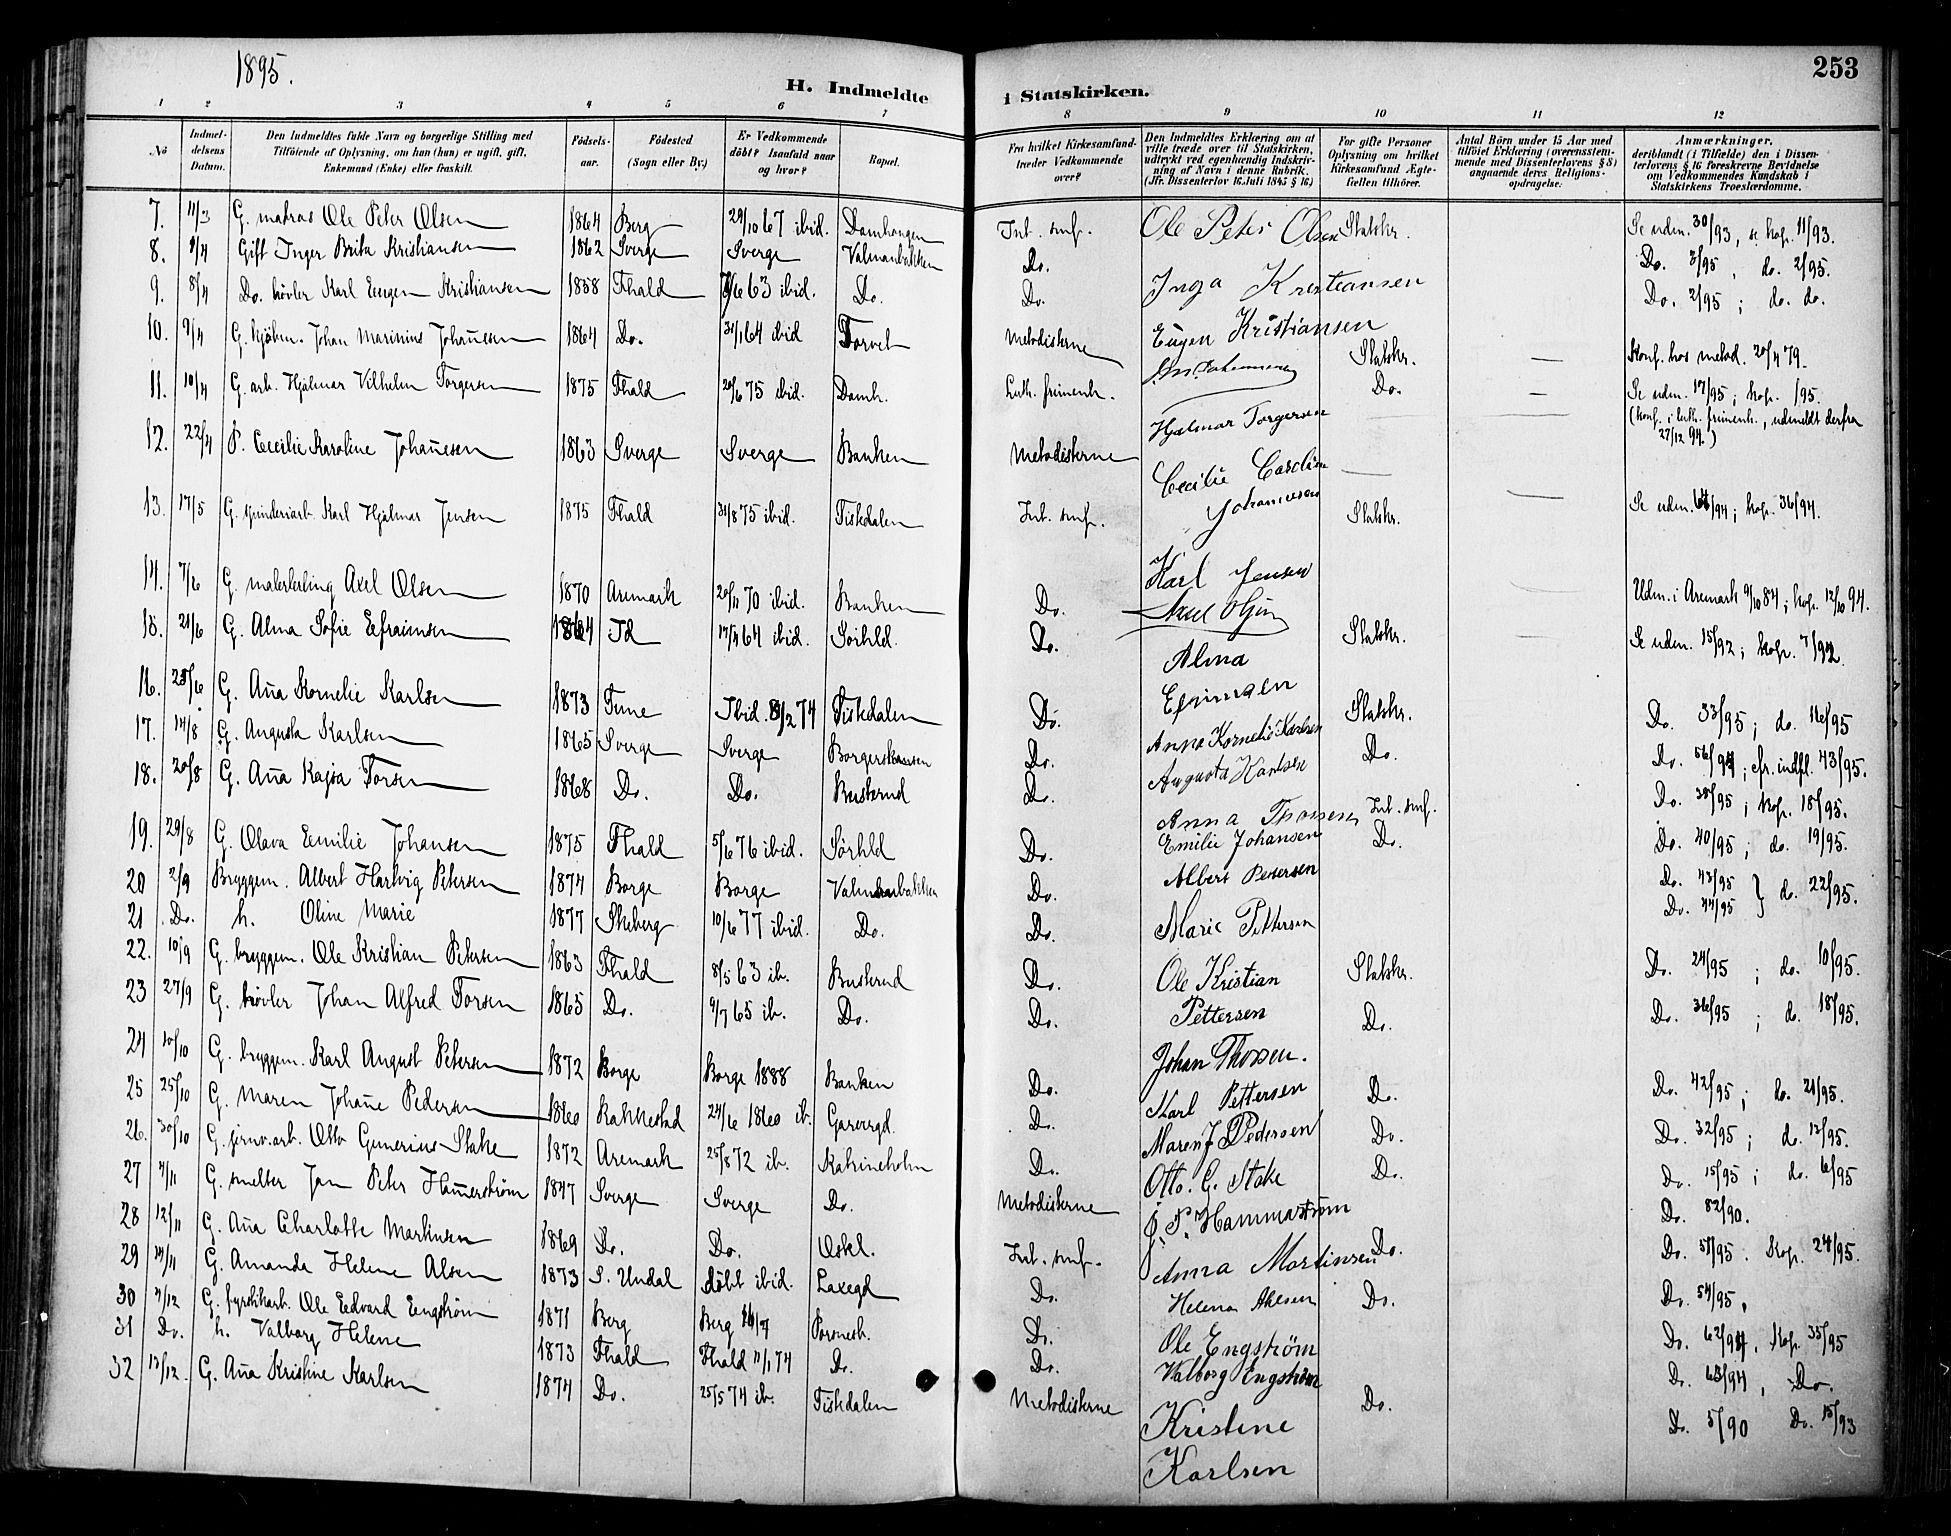 1895.
253
H. Indmeldte i Statskirken.
1 2 3 4 5 6 7 8 9 10 11 12
No
Indmeldelsens Datum.
Den Indmeldtes fulde Navn og borgerlige Stilling med Tilføiende af Oplysning, om han (hun) er ugift, gift, Enkemand (Enke) eller fraskilt.
Fødselsaar.
Fødested (Sogn eller By.)
Er Vedkommende døbt? Isaafald naar og hvor?
Bopæl.
Fra hvilket Kirkesamfund træder Vedkommende over?
Den Indmeldtes Erklæring om at ville træde over til Statskirken, udtrykt ved egenhændig Indskrivning af Navn i denne Rubrik. (Jfr. Dissenterlov 16. Juli 1845 § 16.)
For gifte Personer Oplysning om hvilket Kirkesamfund Ægtefællen tilhører.
Antal Børn under 15 Aar med tilføiet Erklæring (overensstemmende med Dissenterlovens § 8) angaaende deres Religionsopdragelse:
Anmærkninger, deriblandt (i Tilfælde) den i Dissenterlovens § 16 foreskrevne Bevidnelse om Vedkommendes Kundskab i Statskirkens Troeslærdomme.
7. 11/3 G. matros Ole Peter Olsen 1864 Berg 29/10 67 ibid. Damhaugen Int. smf. Ole Peter Olsen Statskr. Se udm. 30/93, se kop. 11/93.
8. 9/4 Gift Inger Brita Kristiansen 1862 Sverge Sverge Valmanbakken Do. Inga Kristiansen Do. 3/95, do. 2/95.
9. 8/4 Do. høvler Karl Eugen Kristiansen 1858 Fhald 63 ibid. Do. Do. Eugen Kristiansen Do. 2/95; do. do.
10. 9/4 G. kjøbm. Johan Marinius Johannesen 1864 Do. 31/1 64 ibid Torvet Metodisterne Statskr. — Konf. hos metod. 20/4 79.
11. 10/4 G. arb. Hjalmar Vilhelm Torgersen 1875 Fhald 20/6 75 ibid. Damh. Luth. frimenh. Hjalmar Torgersen Do. — Se udm. 17/95; kop. /95. (Konf. i luth. frimenh., udmeldt derfra 27/12 94.)
12. 22/4 P. Cecilie Karoline Johannesen 1863 Sverge Sverge Banken Metodisterne Cecilie Caroline Johannesen —
13. 17/5 G. spinderiarb. Karl Hjalmar Jensen 1875 Fhald 31/8 75 ibid. Fiskdalen Int. smf. Karl Jensen Statskr. Se udm. 64/94; kop. 36/94.
14. 7/6 G. malerlerling Axel Olsen 1870 Aremark 20/11 70 ibid. Banken Do. Udm. i Aremark 9/10 84; kop. 12/10 94.
15. 21/6 G. Alma Sofie Eefraimsen 1864 Id 17/4 64 ibid. Sørhld. Do. Alma Statskr. Se udm. 15/92; kop. 7/92.
16. 25/6 G. Anna Kornelie Karlsen 1873 Tune Ibid. 8/2 74 Fiskdalen Do. Anna Kornelie Karlsen Statskr. Do. 33/95; do. 16/95
17. 14/8 G. Augusta Karlsen 1865 Sverge Sverge Borgerskansen Do. Augusta Karlsen Do. Do. 56/94; cfr. indfl. 43/95.
18. 20/8 G. Anna Kajsa Torsen 1868 Do. Do. Busterud Do. Anna Thorsen Int. smf. Do. 35/95; kop. 18/95.
19. 29/8 G. Olava Eemilie Johansen 1875 Fhald 5/6 76 ibid. Sørhld Do. Emilie Johansen Do. Do. 40/95; do. 19/95.
20 2/9 Bryggem. Albert Hartvig Petersen 1874 Borge Borge Valmanbakken Do. Albert Petersen Do. 43/95 } do. 22/95.
21 Do. h. Oline Marie 1877 Skeberg 10/6 77 ibid. Do. Do. Marie Pettersen Do. 44/95
22. 10/9 G. bryggem. Ole Kristian Petersen 1863 Fhald 8/5 63 ib. Busterud Do. Ole Kristian Pettersen Statskr. Do. 24/95; do. 10/95.
23 27/9 G. høvler Johan Alfred Torsen 1865 Do. 9/7 65 ib. Do. Do. Johan Thorsen. Do. Do. 36/95; do. 18/95.
24 10/10 G. bryggem. Karl August Petersen 1872 Borge Borge 1888 Banken Do. Karl Pettersen Do. Do. 42/95; do. 21/95.
25 25/10 G. Maren Johanne Pedersen 1860 Rakkestad 24/6 1860 ib. Garvergd. Do. Maren J Pedersen Do. Do. 32/95; do. 12/95.
26. 30/10 G. jernv.arb. Otto Gunerius Stake 1872 Aremark 25/8 72 ib. Katrineholm Do. Otto. G. Stake Do. Do. 15/95; do. 6/95
27 4/11 G. smelter Jan Peter Hammerstrøm 1847 Sverge Sverge Do. Metodisterne J. P. Hammarstrøm Do. 82/90.
28 12/11 G. Anna Charlotte Martinsen 1869 Do. Do. Oskl. Int. smf. Anna Martinsen Do. Do. 51/95. Kop. 24/95.
29 14/11 G. Amanda Helene Alsen 1873 S. Undal døbt ibid. Laxegd Do. Helena Ahlsen Do. Do. 54/95.
30 4/12 G. fyrstikarb. Ole Eedvard Eengstrøm 1871 Berg Berg Porsnesb. Do. Ole Engstrøm Do. 62/94. Kop. 35/95
31 Do. h. Valborg Helene 1873 Fhald Fhald 11/1 74 Do. Do. Valborg Engstrøm Do. 63/94, Do.
32 13/12. G. Anna Kristine Karlsen 1874 Do. 25/5 74 ib. Fiskdalen Metodisterne Kristine Karlsen Do. Do. 5/90 Do. 15/93